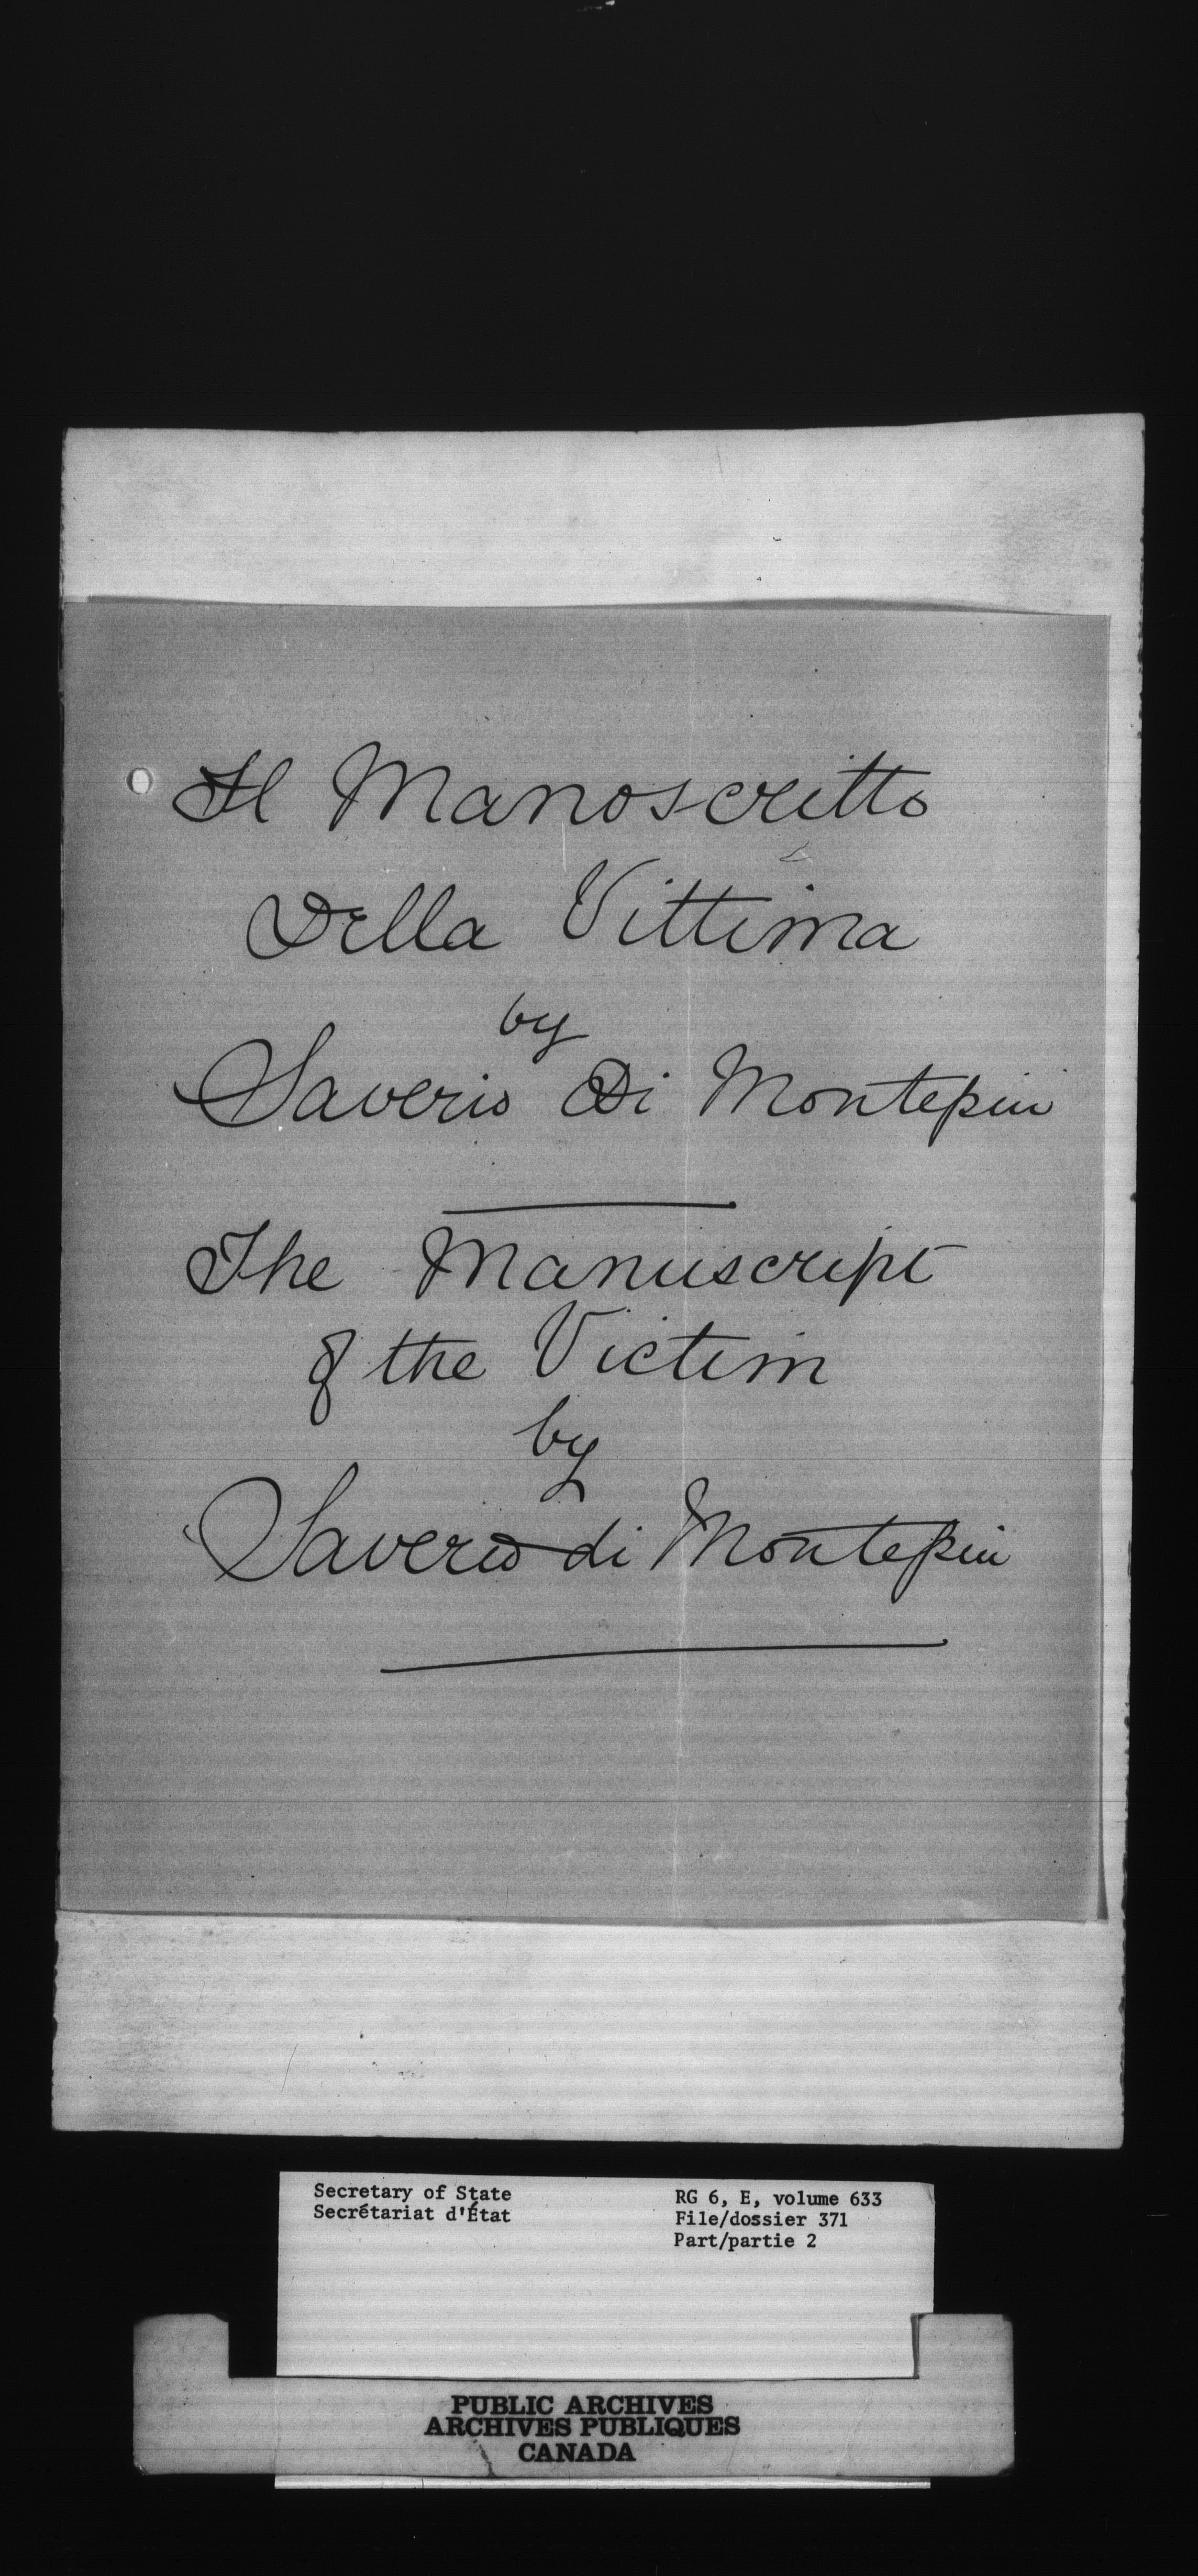 Il Manoscritto
Della Vittima
by
Saverio Di Montepin
The Manuscript
of the Victim
by
Saverio di Montepin
Secretary of State
Secrétariat d'État
RG 6, E, volume 633
File/dossier 371
Part/partie 2
PUBLIC ARCHIVES
ARCHIVES PUBLIQUES
CANADA